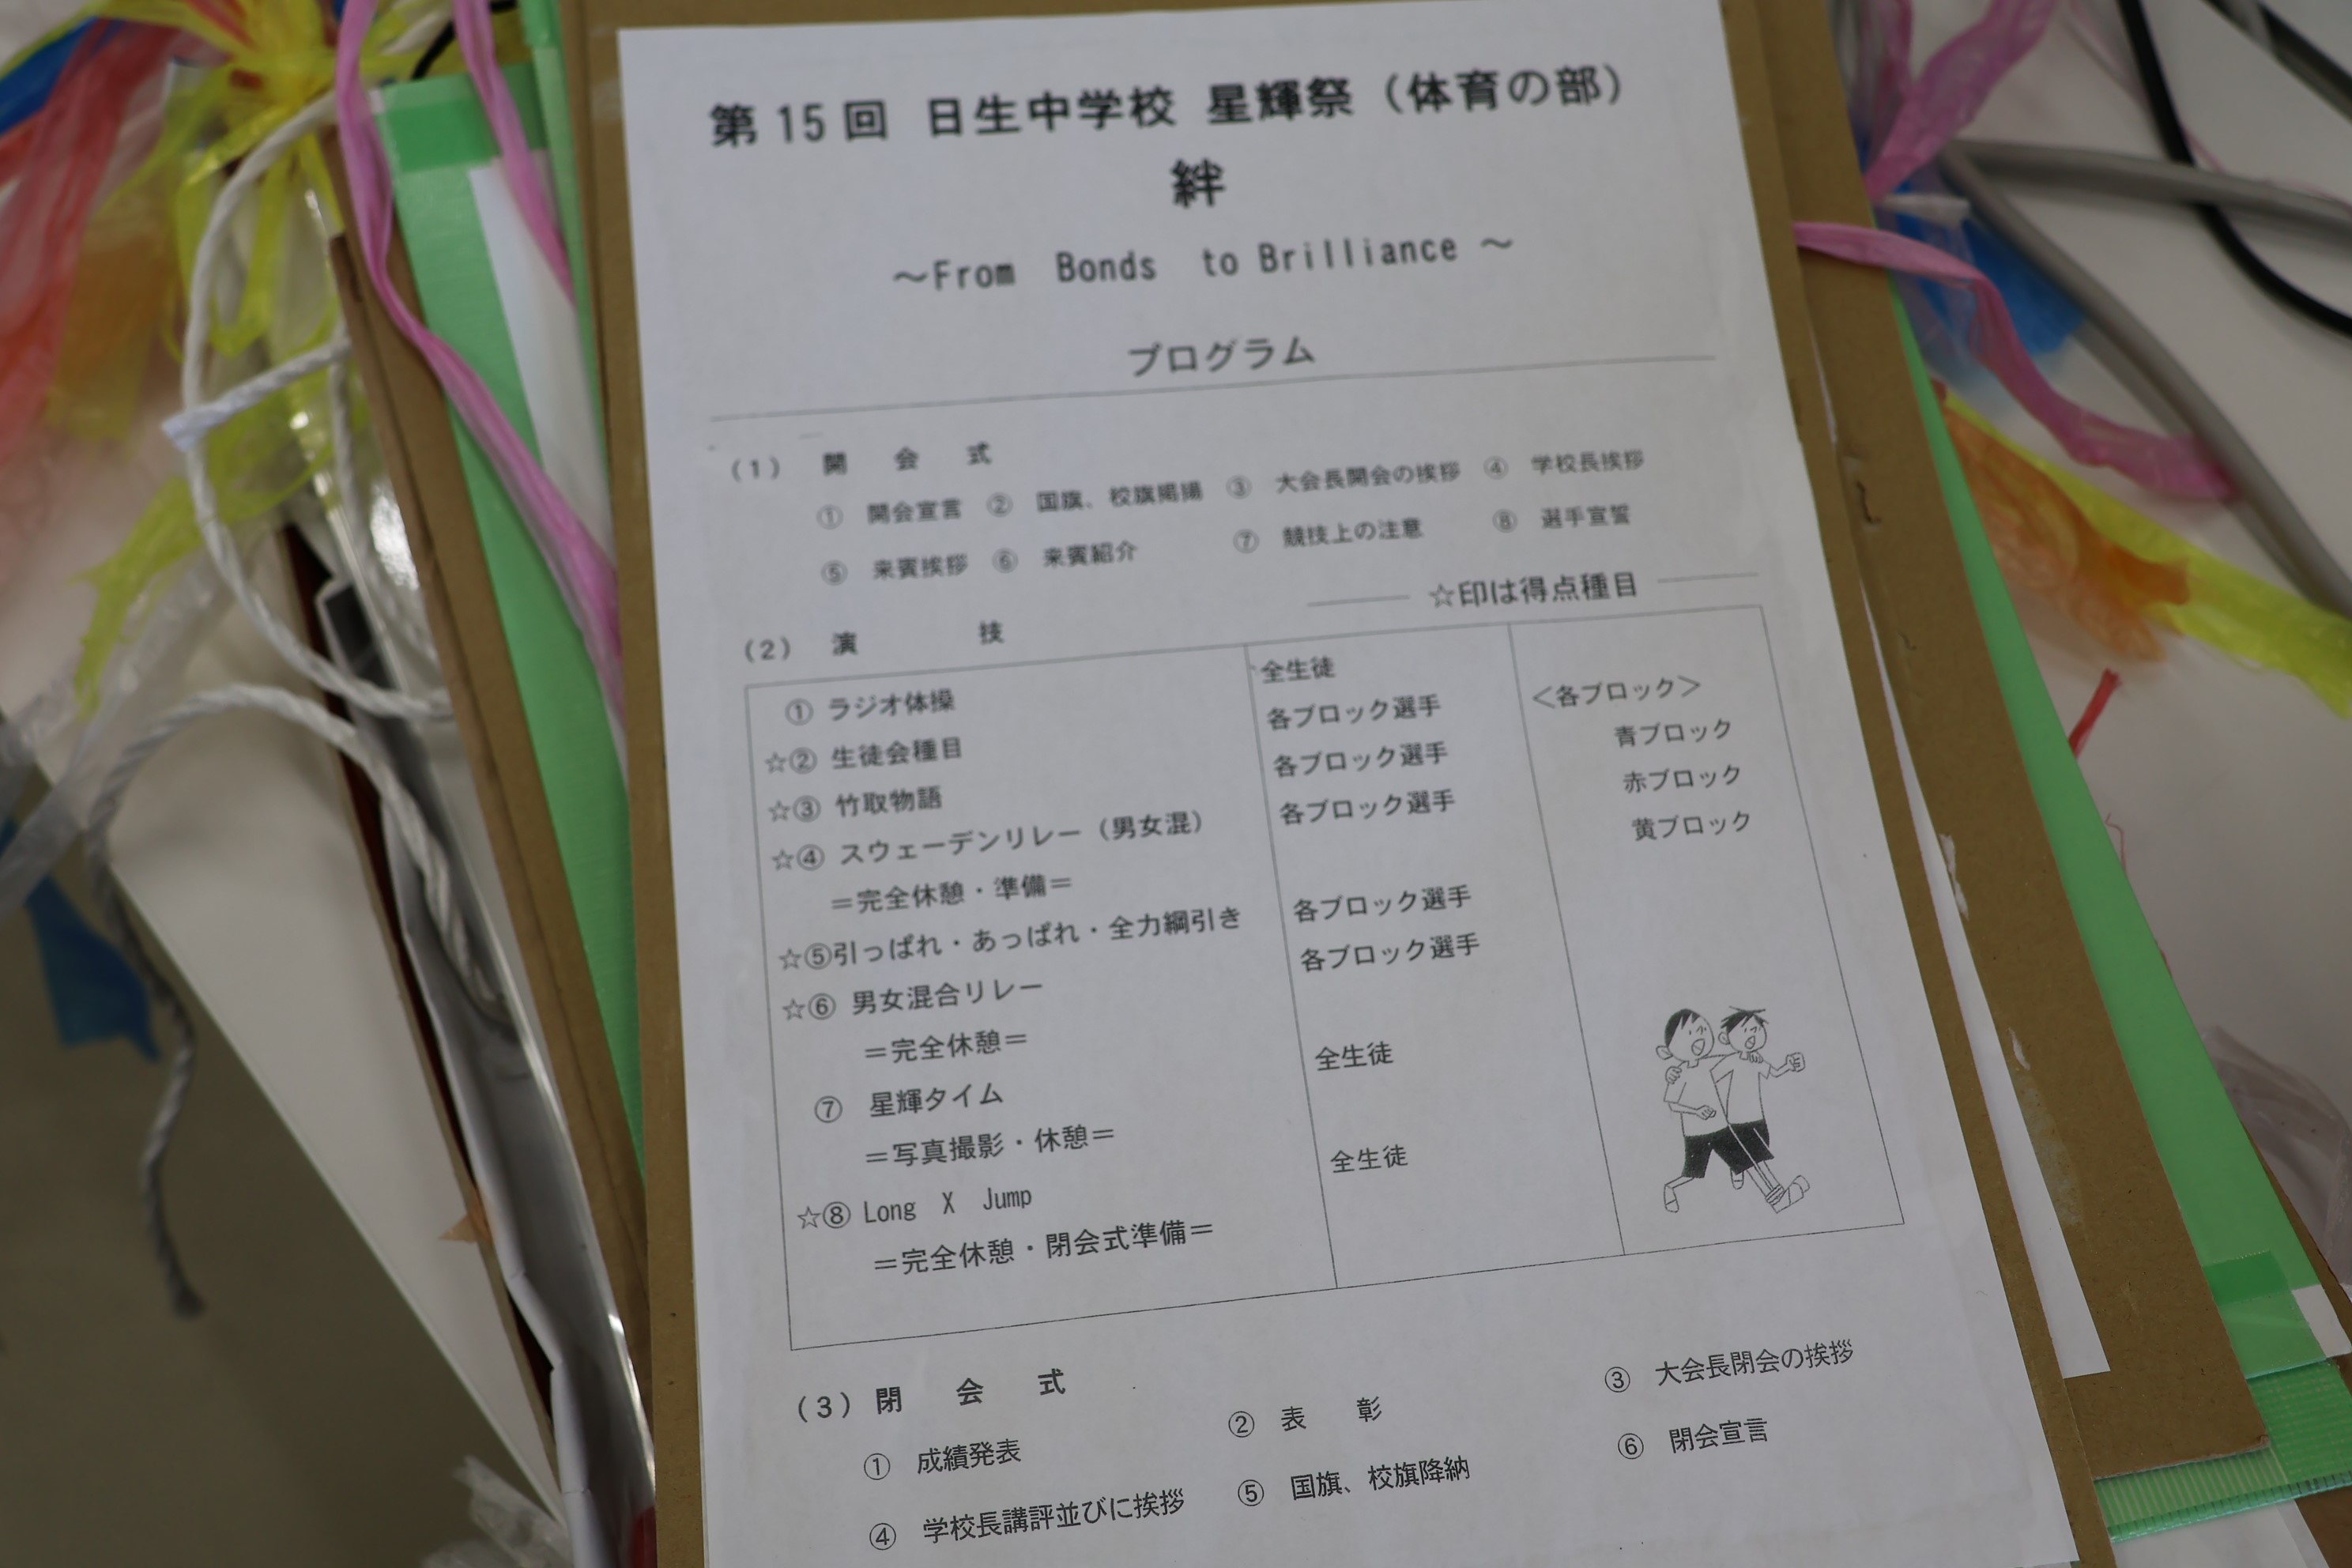 第15回 日生中学校 星輝祭（体育の部）
絆
～From Bonds to Brilliance ～
プログラム
(1) 開 会 式
① 開会宣言 ② 国旗、校旗掲揚 ③ 大会長開会の挨拶 ④ 学校長挨拶
⑤ 来賓挨拶 ⑥ 来賓紹介 ⑦ 競技上の注意 ⑧ 選手宣誓
☆印は得点種目
(2) 演 技
① ラジオ体操 全生徒
☆② 生徒会種目 各ブロック選手
☆③ 竹取物語 各ブロック選手
☆④ スウェーデンリレー（男女混） 各ブロック選手
＝完全休憩・準備＝
☆⑤引っぱれ・あっぱれ・全力綱引き 各ブロック選手
☆⑥ 男女混合リレー 各ブロック選手
＝完全休憩＝
⑦ 星輝タイム 全生徒
＝写真撮影・休憩＝
☆⑧ Long X Jump 全生徒
＝完全休憩・閉会式準備＝
＜各ブロック＞
青ブロック
赤ブロック
黄ブロック
(3) 閉 会 式
① 成績発表 ② 表 彰 ③ 大会長閉会の挨拶
④ 学校長講評並びに挨拶 ⑤ 国旗、校旗降納 ⑥ 閉会宣言